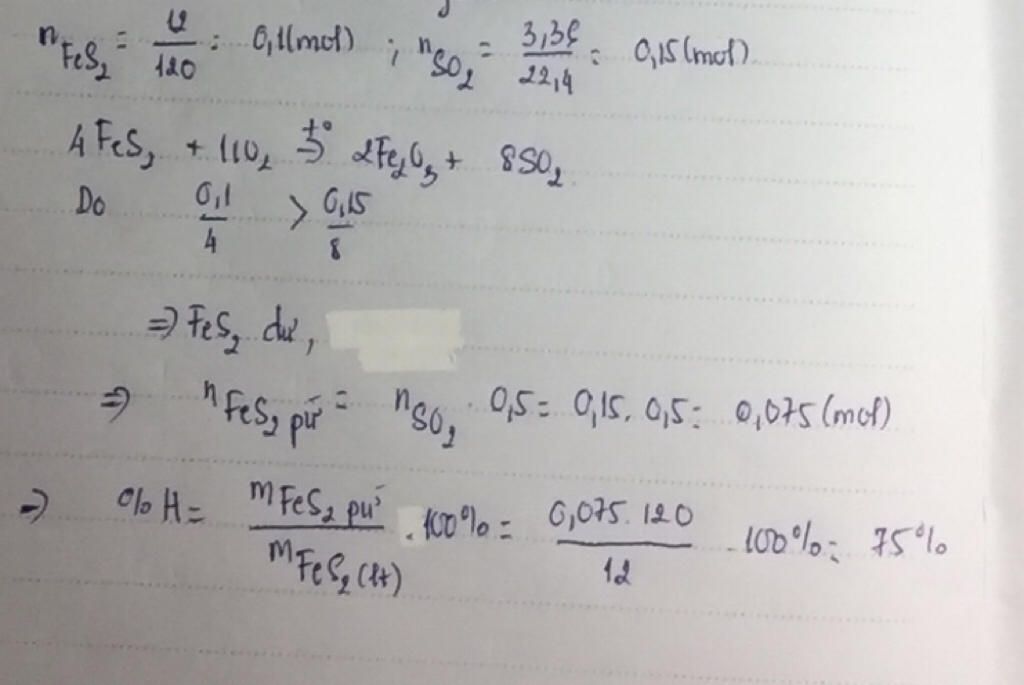 nFeS₂ = 12/120 = 0,1(mol) ; nSO₂ = 3,36/22,4 = 0,15(mol)
4FeS₂ + 11O₂ t°→ 2Fe₂O₃ + 8SO₂
Do 0,1/4 > 0,15/8
⇒ FeS₂ dư,
⇒ nFeS₂ pứ = nSO₂ . 0,5 = 0,15. 0,5 = 0,075(mol)
⇒ %H = mFeS₂ pứ/mFeS₂(lt) . 100% = 0,075. 120/12 . 100% = 75%